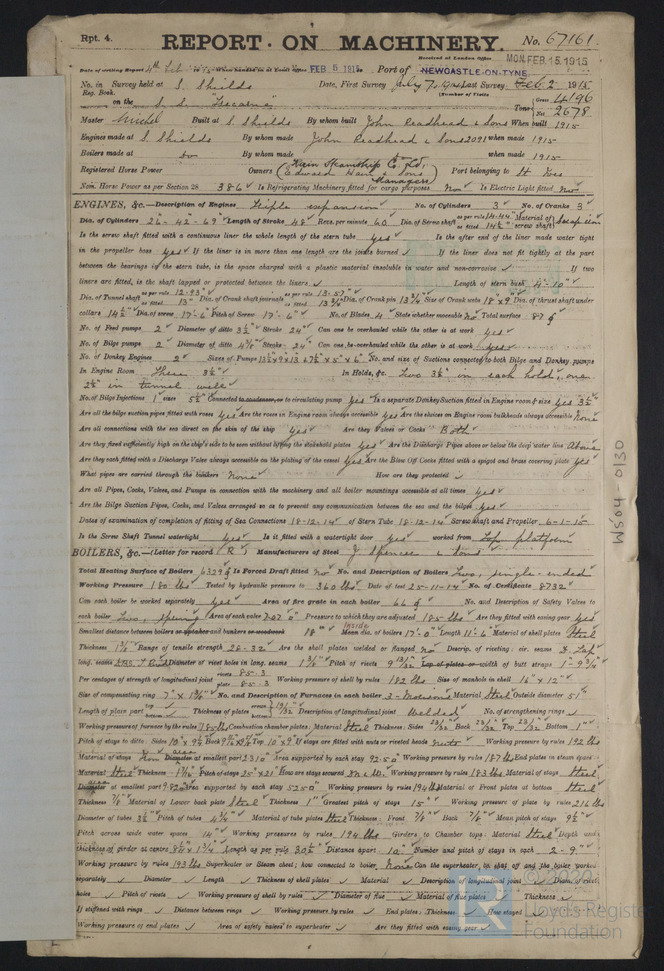 Rpt. 4.
REPORT ON MACHINERY.
No. 67161.
Received at London Office MON. FEB. 15 1915
Date of writing Report 4th Feb 1915 When handed in at Local Office FEB 5 1915 Port of NEWCASTLE-ON-TYNE
No. in Survey held at S. Shields Date, First Survey July 7, 1914 Last Survey Feb. 2 1915
Reg. Book. (Number of Visits
on the S. S. Tons Gross 4196 Net 2678
Master Michel Built at S. Shields By whom built John Readhead & Sons When built 1915
Engines made at S. Shields By whom made John Readhead & Sons 2091 when made 1915
Boilers made at Do By whom made when made 1915
Registered Horse Power Owners Hain Steamship Co. Ld. (Edward Hain & Sons Managers) Port belonging to St Ives
Nom. Horse Power as per Section 28 386 Is Refrigerating Machinery fitted for cargo purposes No Is Electric Light fitted No
ENGINES, &c.—Description of Engines Triple expansion No. of Cylinders 3 No. of Cranks 3
Dia. of Cylinders 26-42-69" Length of Stroke 48 Revs. per minute 60 Dia. of Screw shaft as per rule 14.44" as fitted 14½" Material of screw shaft
Is the screw shaft fitted with a continuous liner the whole length of the stern tube yes Is the after end of the liner made water tight
in the propeller boss yes If the liner is in more than one length are the joints burned ✓ If the liner does not fit tightly at the part
between the bearings in the stern tube, is the space charged with a plastic material insoluble in water and non-corrosive ✓ If two
liners are fitted, is the shaft lapped or protected between the liners ✓ Length of stern bush 4'-10"
Dia. of Tunnel shaft as per rule 12.93" as fitted 13" Dia. of Crank shaft journals as per rule 13.57" as fitted 13¾" Dia. of Crank pin 13¾" Size of Crank webs 18" x 9" Dia. of thrust shaft under
collars 14½" Dia. of screw 17'-6" Pitch of Screw 17'-6" No. of Blades 4 State whether moveable No Total surface 87
No. of Feed pumps 2 Diameter of ditto 3½" Stroke 24" Can one be overhauled while the other is at work yes
No. of Bilge pumps 2 Diameter of ditto 4⅜" Stroke 24" Can one be overhauled while the other is at work yes
No. of Donkey Engines 2 Sizes of Pumps No. and size of Suctions connected to both Bilge and Donkey pumps
In Engine Room Three 3½" In Holds, &c. Two 3½" in each hold, one
2½" in tunnel well
No. of Bilge Injections 1 sizes 5½" Connected to condenser, or to circulating pump yes Is a separate Donkey Suction fitted in Engine room & size yes 3½"
Are all the bilge suction pipes fitted with roses yes Are the roses in Engine room always accessible yes Are the sluices on Engine room bulkheads always accessible None
Are all connections with the sea direct on the skin of the ship yes Are they Valves or Cocks Both
Are they fixed sufficiently high on the ship's side to be seen without lifting the stokehold plates yes Are the Discharge Pipes above or below the deep water line Above
Are they each fitted with a Discharge Valve always accessible on the plating of the vessel yes Are the Blow Off Cocks fitted with a spigot and brass covering plate yes
What pipes are carried through the bunkers None How are they protected ✓
Are all Pipes, Cocks, Valves, and Pumps in connection with the machinery and all boiler mountings accessible at all times yes
Are the Bilge Suction Pipes, Cocks, and Valves arranged so as to prevent any communication between the sea and the bilges yes
Dates of examination of completion of fitting of Sea Connections 18-12-14 of Stern Tube 18-12-14 Screw shaft and Propeller 6-1-15
Is the Screw Shaft Tunnel watertight yes Is it fitted with a watertight door yes worked from Top platform
BOILERS, &c.—(Letter for record R) Manufacturers of Steel J. Spencer & Sons
Total Heating Surface of Boilers 6329 Is Forced Draft fitted No No. and Description of Boilers Two, single-ended
Working Pressure 180 lbs Tested by hydraulic pressure to 360 lbs Date of test 25-11-14 No. of Certificate 8732
Can each boiler be worked separately yes Area of fire grate in each boiler 66 No. and Description of Safety Valves to
each boiler Two, spring Area of each valve Pressure to which they are adjusted 185 lbs Are they fitted with easing gear yes
Smallest distance between boilers or uptakes and bunkers or woodwork 18" Inside Mean dia. of boilers 17'-0" Length 11'-6 Material of shell plates Steel
Thickness Range of tensile strength 28-32 Are the shell plates welded or flanged No Descrip. of riveting: cir. seams D. Lap
long. seams Diameter of rivet holes in long. seams Pitch of rivets Lap of plates or width of butt straps
Per centages of strength of longitudinal joint rivets 85.3 plate 85.3 Working pressure of shell by rules 182 lbs Size of manhole in shell 16" x 12"
Size of compensating ring No. and Description of Furnaces in each boiler 3-Morisons Material Steel Outside diameter 51
Length of plain part top bottom Thickness of plates crown bottom 19/32 Description of longitudinal joint Welded No. of strengthening rings ✓
Working pressure of furnace by the rules 185 lbs Combustion chamber plates: Material Steel Thickness: Sides 23/32 Back 23/32 Top 23/32 Bottom 1"
Pitch of stays to ditto: Sides Back Top 10" x 9" If stays are fitted with nuts or riveted heads Nuts Working pressure by rules 192 lbs
Material of stays Iron area at smallest part Area supported by each stay Working pressure by rules 187 lbs End plates in steam space:
Material Steel Thickness Pitch of stays 25" x 21" How are stays secured Working pressure by rules 183 lbs Material of stays Steel
area at smallest part Area supported by each stay Working pressure by rules 194 lbs Material of Front plates at bottom Steel
Thickness ⅞" Material of Lower back plate Steel Thickness 1" Greatest pitch of stays 15" Working pressure of plate by rules 216 lbs
Diameter of tubes 3½" Pitch of tubes 4¾" Material of tube plates Steel Thickness: Front ⅞" Back ⅞" Mean pitch of stays 9½"
Pitch across wide water spaces 14" Working pressures by rules 194 lbs Girders to Chamber tops: Material Steel Depth and
thickness of girder at centre Length as per rule 30½" Distance apart 10" Number and pitch of stays in each 2-9"
Working pressure by rules 193 lbs Superheater or Steam chest; how connected to boiler None Can the superheater be shut off and the boiler worked
separately ✓ Diameter ✓ Length ✓ Thickness of shell plates ✓ Material ✓ Description of longitudinal joint ✓ Diam. of rivet
holes ✓ Pitch of rivets ✓ Working pressure of shell by rules ✓ Diameter of flue ✓ Material of flue plates Thickness
If stiffened with rings ✓ Distance between rings ✓ Working pressure by rules ✓ End plates: Thickness ✓ How stayed
Working pressure of end plates ✓ Area of safety valves to superheater ✓ Are they fitted with easing gear ✓
WS04-0130
© 2020
Lloyd's Register
Foundation